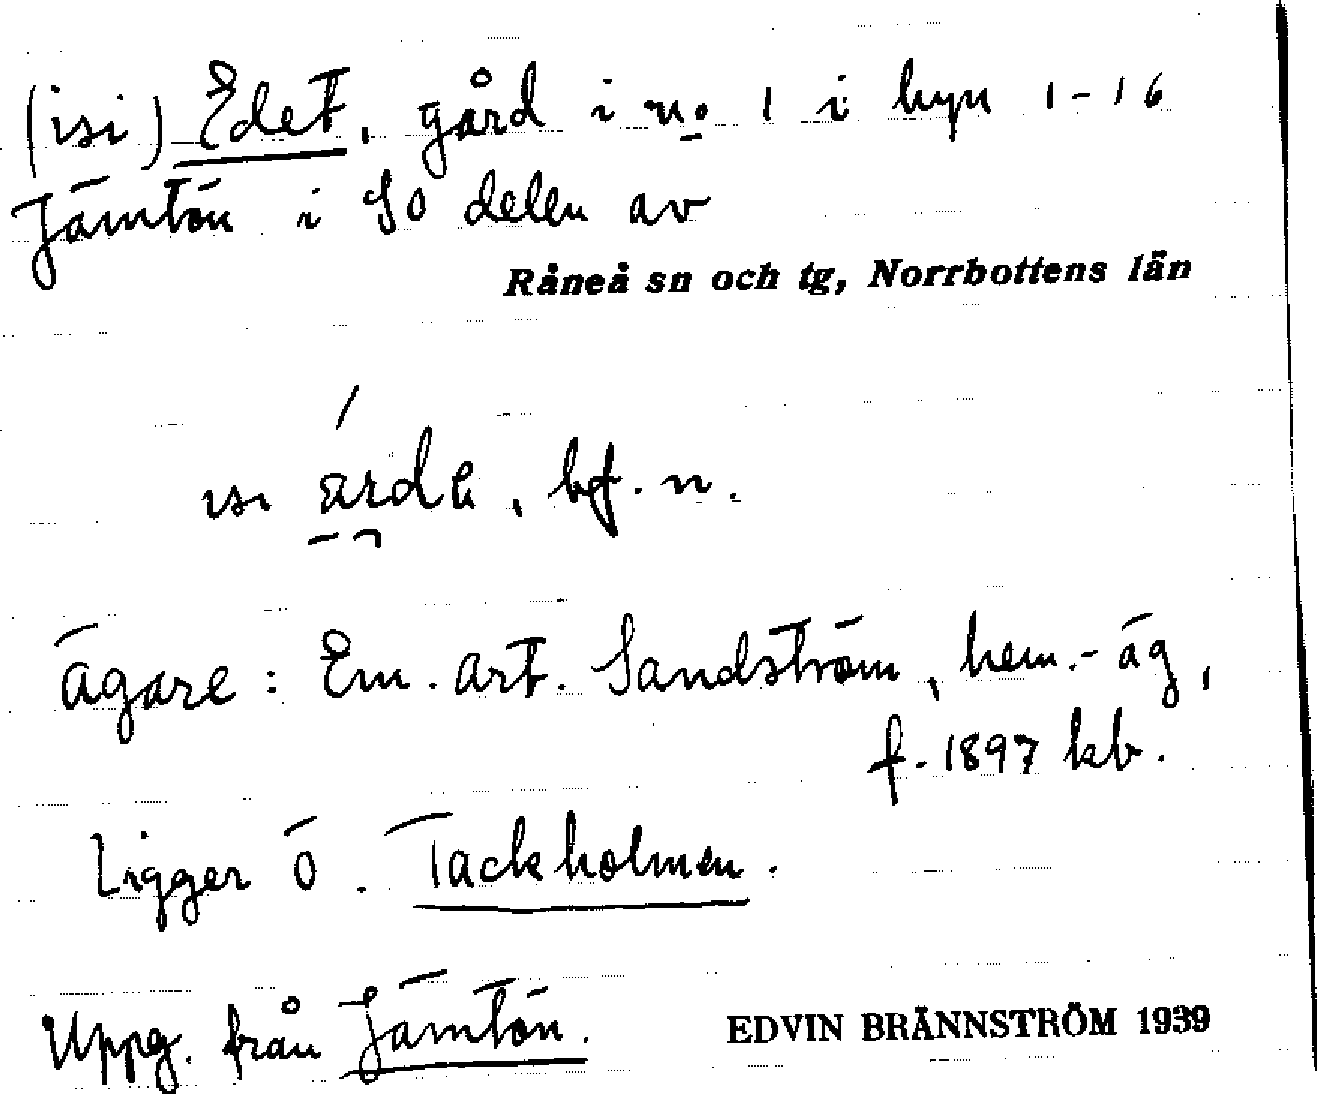 (isi) Edet, gård i n:o 1 i byn 1-16
Jämtön i SO delen av
Råneå sn och tg, Norrbottens län
bf. n.
ägare: Em. Art. Sandström, hem.-äg,
f. 1897 kb.
Ligger ö. Tackholmen.
Uppg. från Jämtön.
EDVIN BRÄNNSTRÖM 1939